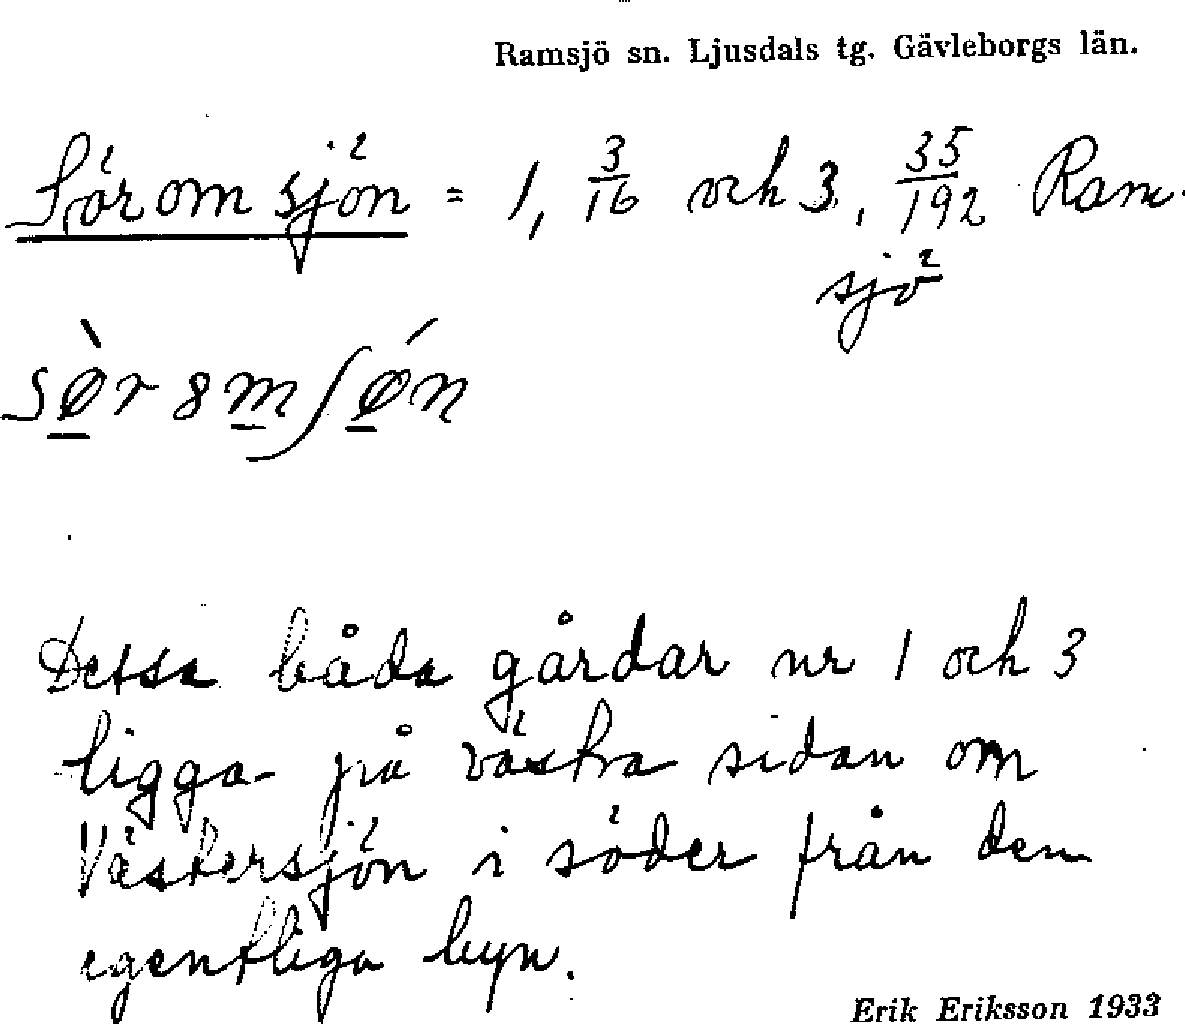 Ramsjö sn. Ljusdals tg. Gävleborgs län.
Sörom sjön = 1, 3/16 och 3, 35/192 Ram-
sjö
Dessa båda gårdar nr 1 och 3
ligga på västra sidan om
Västersjön i söder från den
egentliga byn.
Erik Eriksson 1933